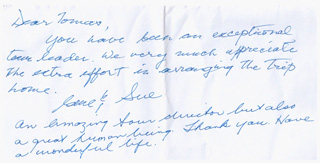 Dear Tomas,
You have been an exceptional
tour leader. We very much appreciate
the extra effort in arranging the trip
home.
Sue
An amazing tour director but also
a great human being. Thank you. Have
a wonderful life.